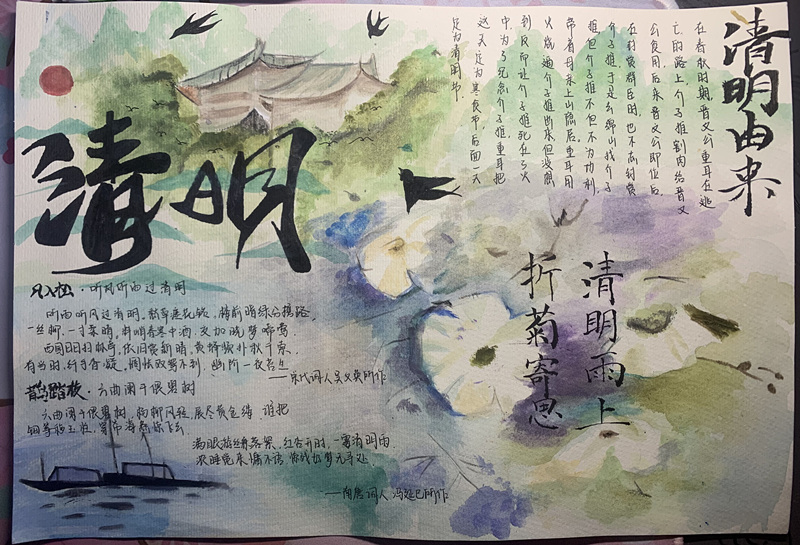 清明由来
在春秋时期晋文公重耳在逃
亡的路上,介子推割肉给晋文
公食用,后来晋文公即位后,
在封赏群臣时,也不忘封赏
介子推于是去绵山找介子
推但介子推不但不为功利
带着母亲上山隐居,重耳用
火烧逼介子推出来但没想
到反而让介子推死在了火
中,为了纪念介子推,重耳把
这天定为寒食节,后面一天
定为清明节。
清明
清明雨上
折菊寄思
风入松·听风听雨过清明
听雨听风过清明,愁草瘗花铭,楼前暗绿分携路,
一丝柳,一寸柔情,料峭春寒中酒,交加晓梦啼莺,
西园日日扫林亭,依旧赏新晴,黄蜂频扑秋千索,
有当时,纤手香凝,惆怅双鸳不到,幽阶一夜苔生
——宋代词人吴文英所作
鹊踏枝·六曲阑干偎碧树
六曲阑干偎碧树,杨柳风轻,展尽黄金缕 谁把
钿筝移玉柱,穿帘海燕
满眼游丝兼落絮,红杏开时,一霎清明雨
浓睡觉来慵不语,惊残好梦无寻处
——南唐词人 冯延巳所作